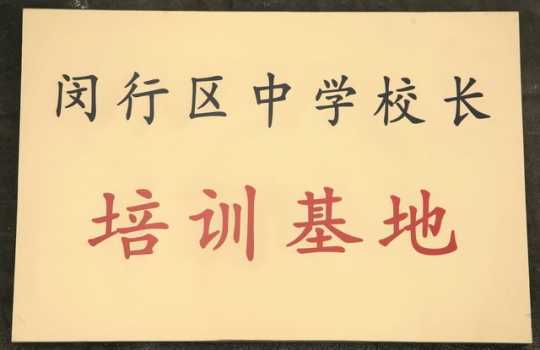 闵行区中学校长
培训基地